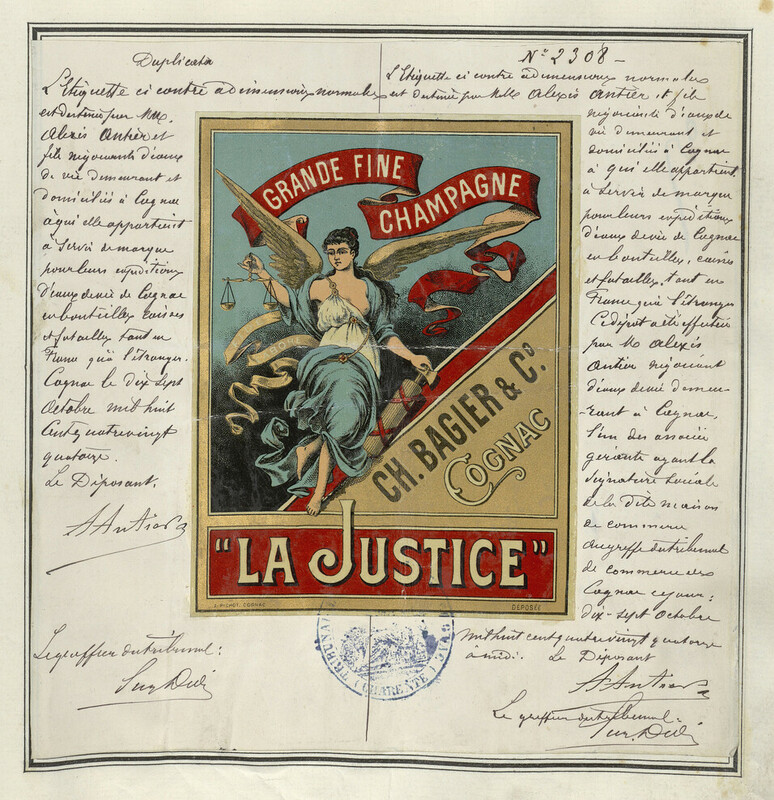 Duplicata
L'Etiquette ci contre a dimensions normales
est destinée par MM.
Alexis Antier et
fils négociants d'eaux
de vie demeurant et
domiciliés à Cognac
à qui elle appartient
à servir de marque
pour leurs expéditions
d'eaux de vie de Cognac
en bouteilles caisses
et futailles tant en
France qu'à l'étranger.
Cognac le dix sept
Octobre mil huit
Cent quatre vingt
quatorze.
Le Déposant,
A Antier
Le greffier du tribunal:
GRANDE FINE
CHAMPAGNE
CH. BAGIER & Cº
COGNAC
"LA JUSTICE"
COGNAC
DÉPOSÉE
TRIBUNAL
CHARENTE
Nº 2308 -
L'Etiquette ci contre a dimensions normales
est destinée par MM. Alexis Antier et fils
négociants d'eaux de
vie demeurant et
domiciliés à Cognac
à qui elle appartient,
à servir de marque
pour leurs expéditions
d'eaux de vie de Cognac
en bouteilles, caisses
et futailles, tant en
France qu'à l'étranger
Ce dépôt a été effectué
par M Alexis
Antier négociant
d'eaux de vie demeu-
-rant à Cognac,
l'un des associés
gérants ayant la
signature sociale
de la dite maison
de commerce
au greffe du tribunal
de commerce de
Cognac ce jour:
dix-sept Octobre
mil huit cent quatre vingt quatorze
à midi. Le Déposant
A Antier
Le greffier du tribunal: